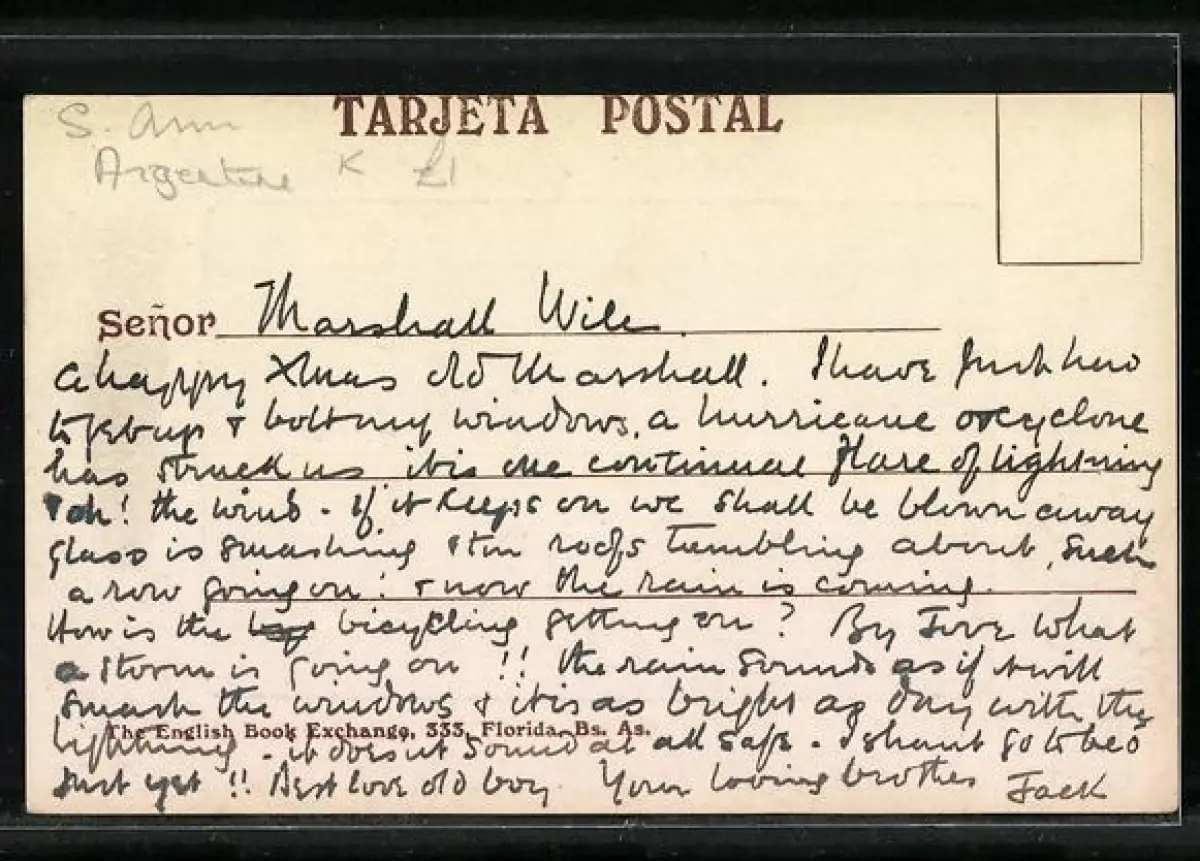 TARJETA POSTAL
S. Am
Argentine K £1
Señor Marshall Wile
A happy Xmas old Marshall. I have just had
to get up & bolt my windows, a hurricane or cyclone
has struck us it is one continual flare of lightning
& oh! the wind. If it keeps on we shall be blown away
glass is smashing & tin roofs tumbling about, such
a row going on! & now the rain is coming.
How is the bicycling getting on? By Jove what
a storm is going on!! the rain sounds as if it will
smash the windows & it is as bright as day with the
lightning. it doesnt sound at all safe. I shant go to bed
The English Book Exchange, 333, Florida, Bs. As.
Just yet!! Best love old boy. Your loving brother Jack